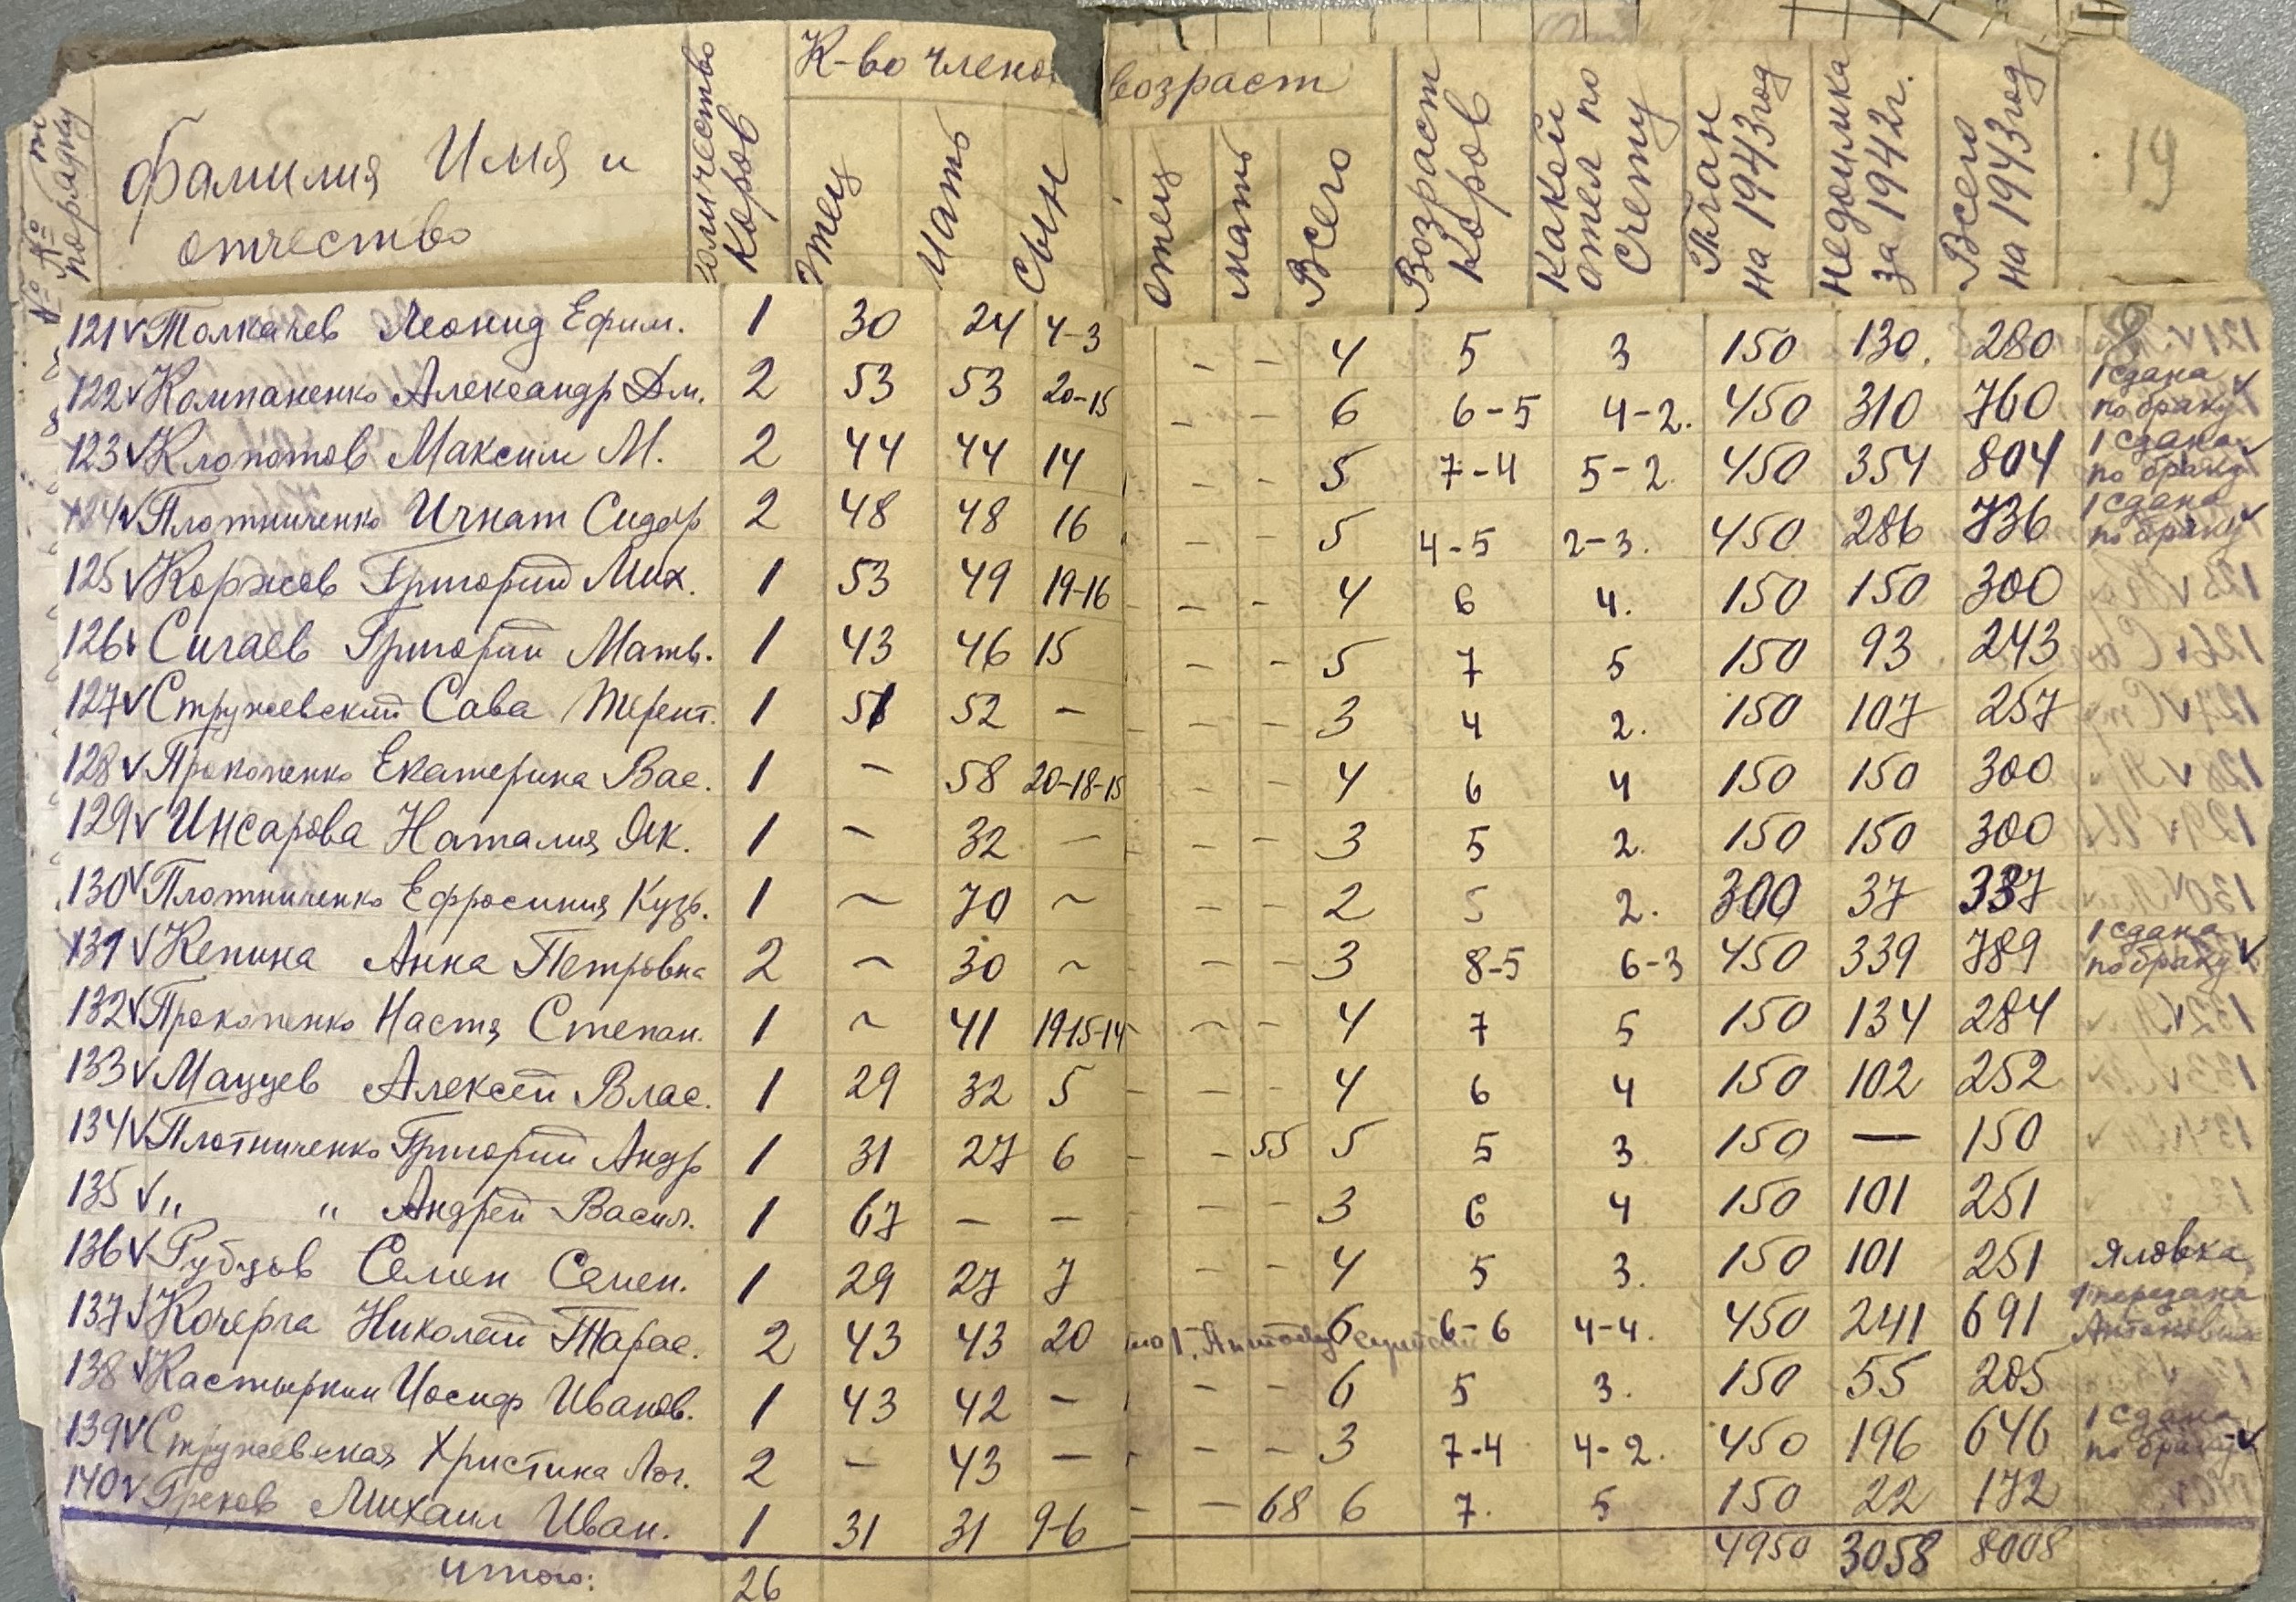 № № п порядку
фамилия Имя и отчество
количество коров
К-во члено
отец
мать
сын
возраст
отец
мать
Всего
Возраст коров
какой отел по счету
План на 1943 год
недоимка за 1942 г.
Всего на 1943 год
19
121 v Толкачев Леонид Ефим. 1 30 24 4-3 - - 4 5 3 150 130. 280
122 v Компаненко Александр Дм. 2 53 53 20-15 - - 6 6-5 4-2. 450 310 760 1 сдана по браку v
123 v Клопотов Максим М. 2 44 44 14 - - 5 7-4 5-2 450 354 804 1 сдана по браку v
124 v Плотниченко Игнат Сидор 2 48 48 16 - - 5 4-5 2-3. 450 286 736 1 сдана по браку v
125 v Коржов Григорий Мих. 1 53 49 19-16 - - - 4 6 4. 150 150 300
126 v Сигаев Григорий Матв. 1 43 46 15 - - 5 7 5 150 93 243
127 v Стружевский Сава Терент. 1 51 52 - - - 3 4 2. 150 107 257
128 v Прокопенко Екатерина Вас. 1 - 58 20-18-15 - - 4 6 4 150 150 300
129 v Инсарова Наталия Як. 1 - 32 - - - 3 5 2. 150 150 300
130 v Плотниченко Ефросиния Кузь. 1 ~ 70 ~ - - 2 5 2. 300 37 337
131 v Кепина Анна Петровна 2 ~ 30 ~ - - - 3 8-5 6-3 450 339 789 1 сдана по браку v
132 v Прокопенко Настя Степан. 1 ~ 41 19-15-14 - - - 4 7 5 150 134 284
133 v Мацуев Алексей Влас. 1 29 32 5 - - - 4 6 4 150 102 252
134 v Плотниченко Григорий Андр 1 31 27 6 - - 55 5 5 3 150 — 150
135 v " " Андрей Васил. 1 67 - - - - - 3 6 4 150 101 251
136 v Рубцов Семен Семен. 1 29 27 7 - - 4 5 3. 150 101 251 яловка
137 v Кочерга Николай Тарас. 2 43 43 20 6 6-6 4-4. 450 241 691 1 передана
138 v Кастыркин Иосиф Иванов. 1 43 42 - - - - 6 5 3. 150 55 205
139 v Стружевская Христина Лог. 2 - 43 - - - - 3 7-4 4-2. 450 196 646 1 сдана по браку v
140 v Греков Михаил Иван. 1 31 31 9-6 - - 68 6 7. 5 150 22 172
итого: 26 4950 3058 8008